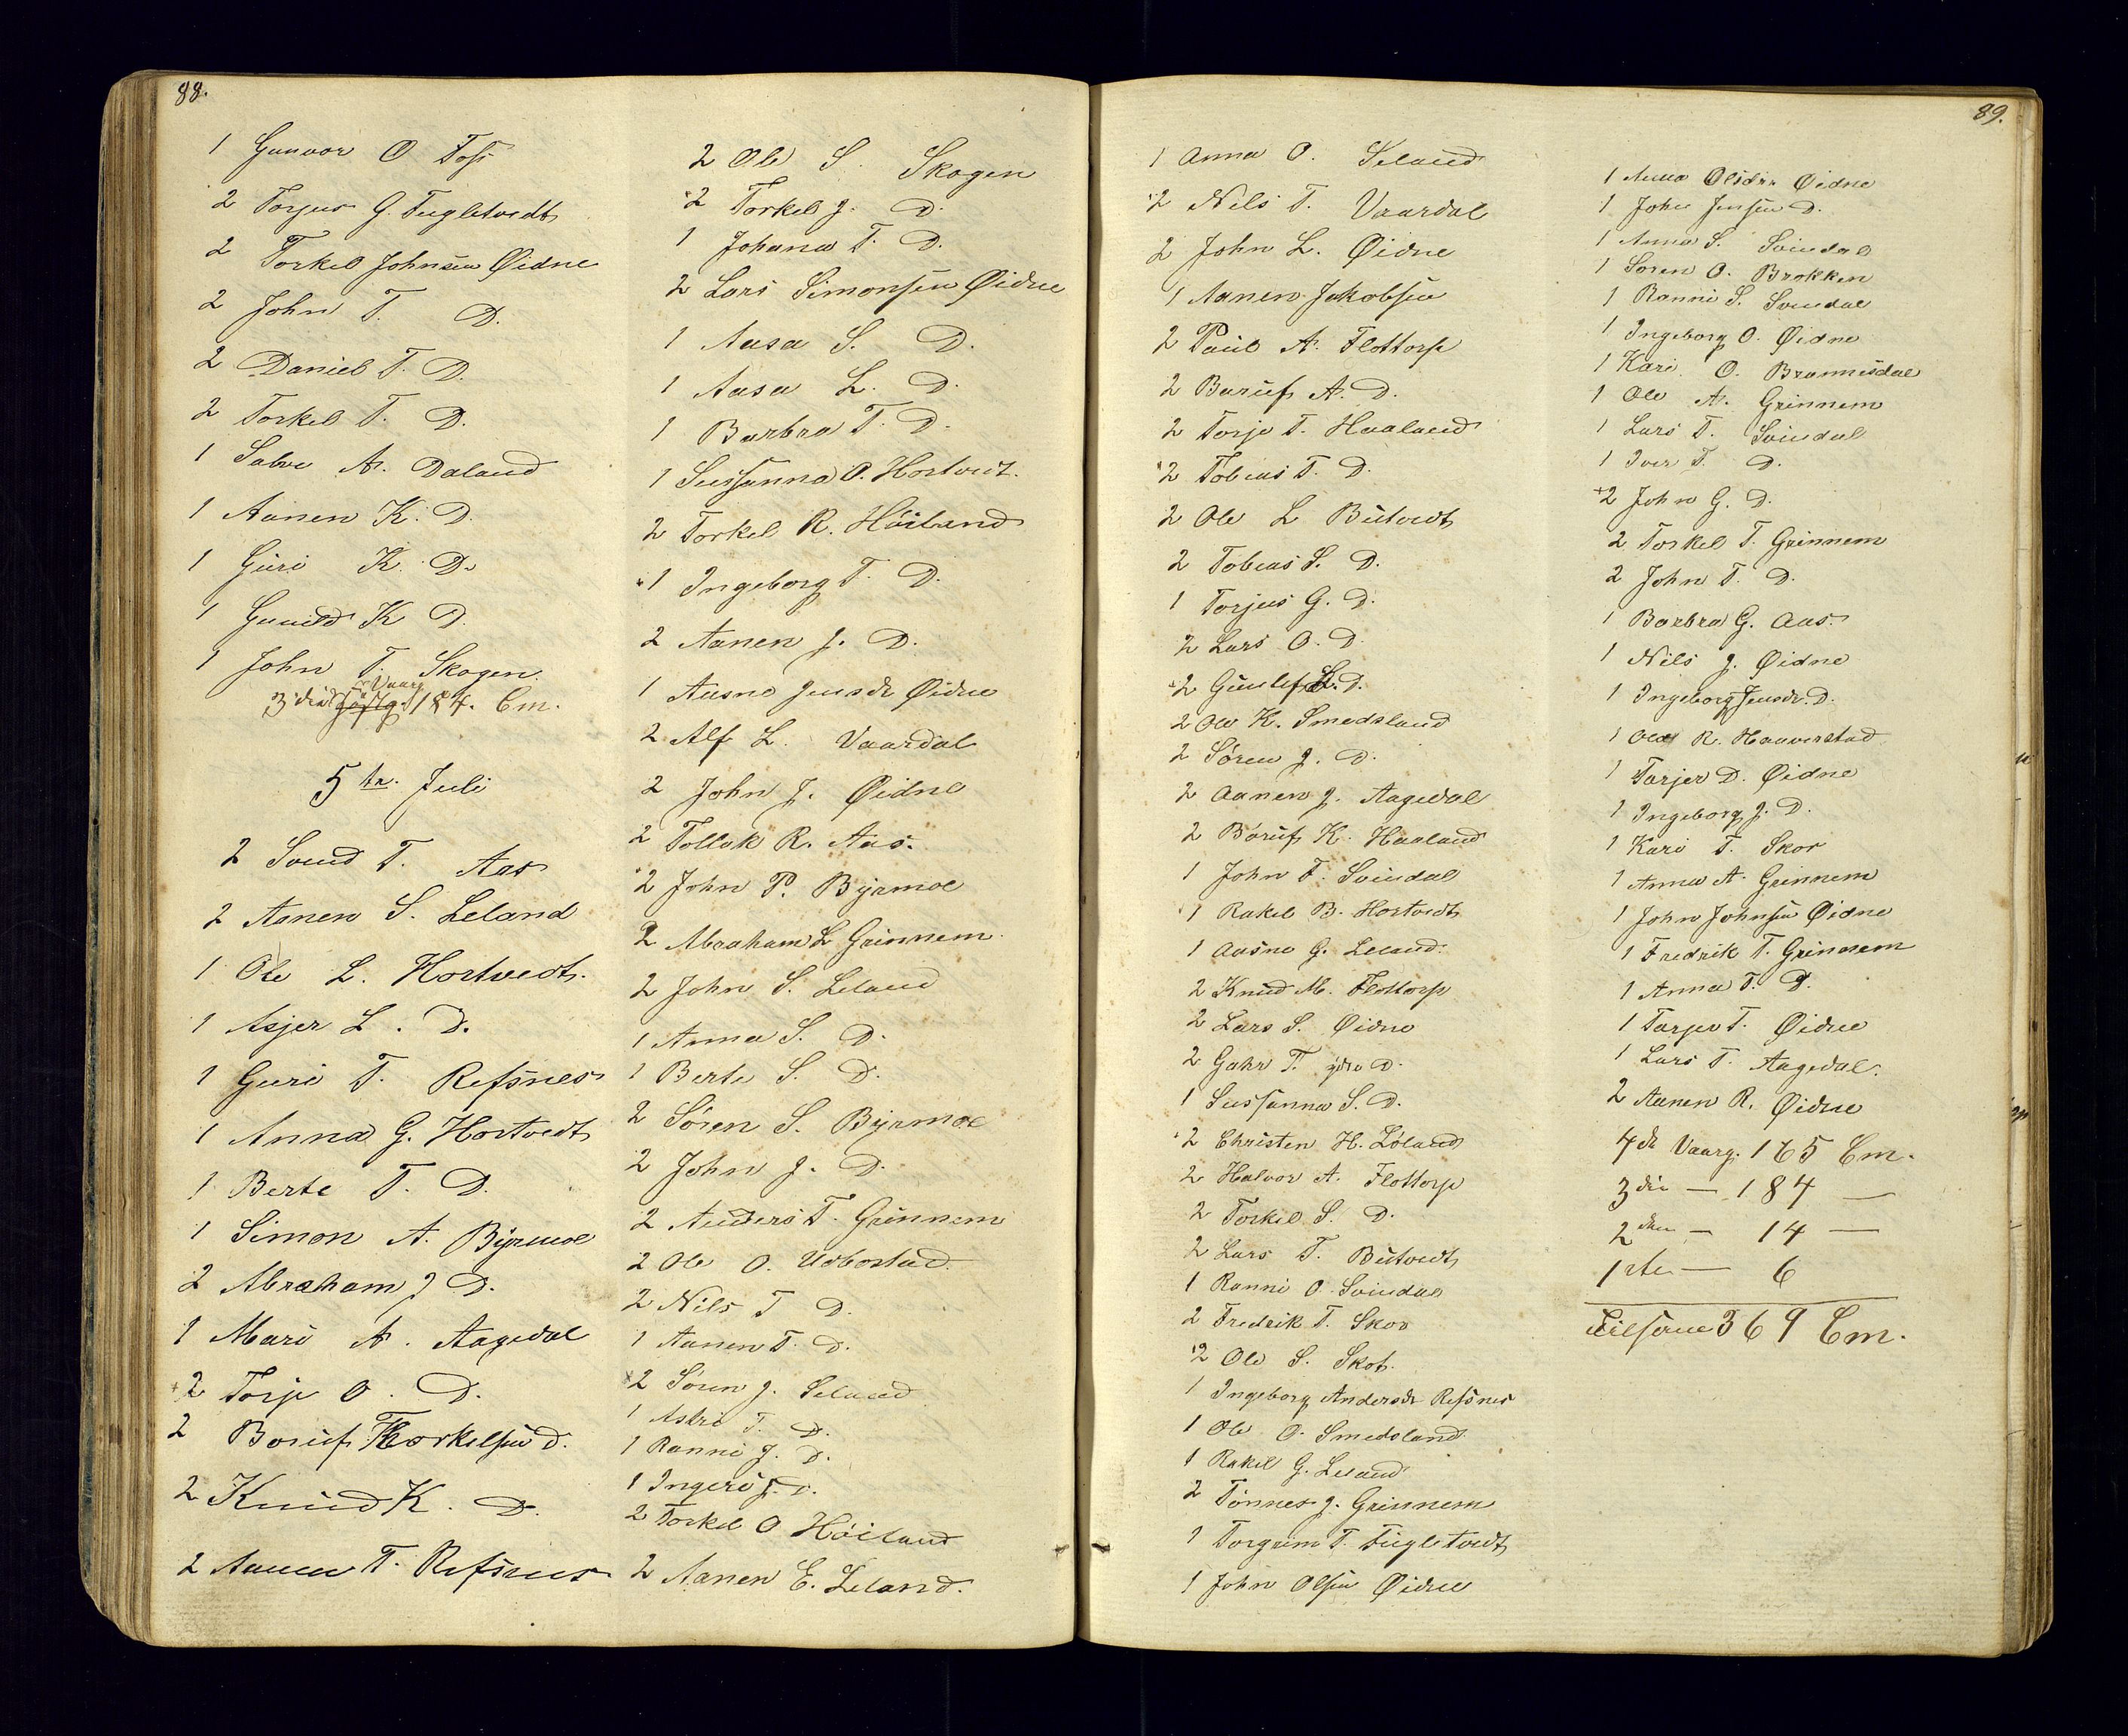 88.
1 Gunvor O Foss
2 Torjus G. Fugletvedt
2 Torkel Johnsen Øidne
2 John T. D.
2 Daniel T. D.
2 Torkel T. D.
1 Salve A. Daland
1 Aanen K. D.
1 Guri K. D.
1 Gunild K D.
1 John T. Skogen.
3die Vaarg. 184. Em.
5te. Juli
2 Svend T. Aas
2 Aanen S. Leland
1 Ole L. Hortvedt.
1 Asjer L. D.
1 Guri T. Refsnes
1 Anna G. Hortvedt
1 Berte T. D.
1 Simon A. Byrmoe
2 Abraham J D.
1 Mari A. Aagedal
2 Torje O. D.
2 Boruf Thorkelsen D.
2 Knud K. D.
2 Aanen T. Refsnes
2 Ole S. Skogen
2 Torkel J. D.
1 Johana T. D.
2 Lars Simonsen Øidne
1 Aasa S. D.
1 Aasa L. D.
1 Barbra T. D.
1 Sussanna O. Hortvedt.
2 Torkel R. Høiland
1 Ingeborg T. D.
2 Aanen J. D.
1 Aasne Jensdr Øidne
2 Alf L. Vaardal
2 John J. Øidne
2 Tollak R. Aas.
2 John P. Byrmoe
2 Abraham L Grinnem.
2 John S. Leland
1 Anna S. D.
1 Berte S. D.
2 Søren S. Byrmoe
2 John J. D.
2 Anders T. Grinnem
2 Ole O. Udbostad.
2 Nils T D.
1 Aanen T. D.
2 Søren J. Leland
1 Astri T. D.
1 Ranni J. D.
1 Ingeri J. D.
2 Torkel O Høiland
2 Aanen E. Leland.
89.
1 Anna O. Leland
2 Nils T. Vaardal
2 John L. Øidne
1 Aanen Jakobsen
2 Paul A. Flottorp
2 Baruf A. D.
2 Torje T. Haaland
2 Tobias T. D.
2 Ole L Butvedt
2 Tobias S. D.
1 Torjus G. D.
2 Lars O. D.
2 Gunlef L. D.
2 Ole K. Smedsland
2 Søren J. D.
2 Aanen J. Aagedal
2 Børuf K. Haaland
1 John T. Svindal
1 Rakel B. Hortvedt
1 Aasne G. Leland.
2 Knud M. Flottorp
2 Lars S. Øidne
2 Gahr T. D.
1 Sussanna S. D.
2 Christen H. Løland
2 Halvor A. Flottorp
2 Torkel S. D.
2 Lars T. Butvedt
1 Ranni O. Svindal
2 Fredrik T. Skor
2 Ole S. Skot.
1 Ingeborg Andersdr Refsnes
1 Ole O. Smedsland
1 Rakel G. Leland
2 Tønnes J. Grinnem
1 Torgrim T. Fugletvedt
1 John Olsen Øidne
1 Anna Olsdtr Øidne
1 John Jensen D.
1 Anna S. Svindal
1 Soren O. Brokken
1 Ranni S. Svindal
1 Ingeborg O. Øidne
1 Kari O. Brannisdal
1 Ole A. Grinnem
1 Lars T. Svindal
1 Iver T. D.
2 John G. D.
2 Torkel T. Grinnem
2 John T. D.
1 Barbra G. Aas.
1 Nils J. Øidne
1 Ingeborg Jensdr. D.
1 Ole R. Haaverstad
1 Tarjer D. Øidne
1 Ingeborg J. D.
1 Kari T. Skor
1 Anna A. Grinnem
1 John Johnsen Øidne
1 Fredrik T. Grinnem
1 Anna T. D.
1 Tarjer T. Øidne
1 Lars T. Aagedal.
2 Aanen R. Øidne
4de Vaarg. 165 Em.
3die — 184 —
2den — 14 —
1ste — 6
Tilsamen 369 Em.